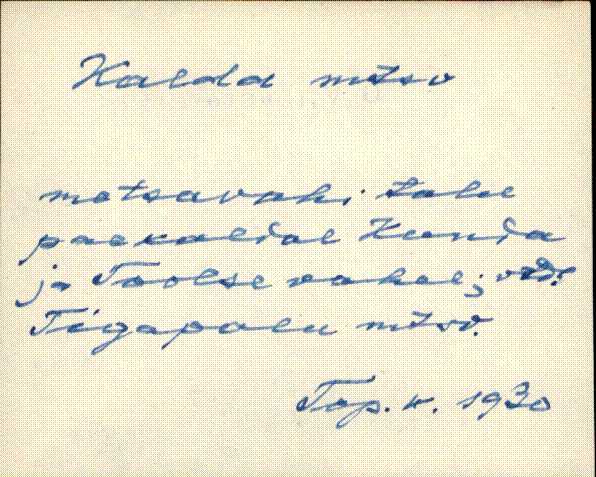 Kalda mtsv
metsavahi talu
paekaldal Kunda
ja Toolse vahel; vrd.
Tigapalu mtsv.
Top. k. 1930